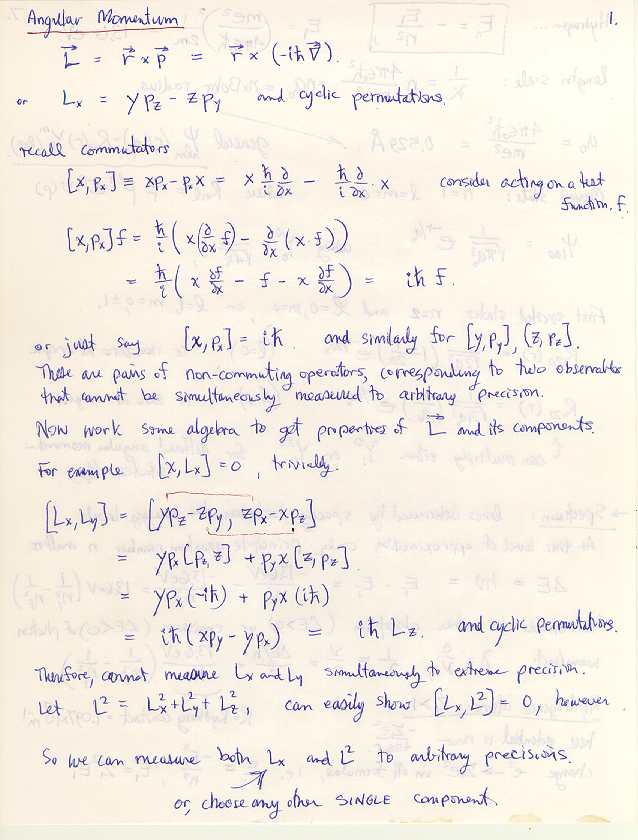 Angular Momentum 1.
L⃗ = r⃗ × p⃗ = r⃗ × (-iħ ∇⃗)
or Lx = y pz - z py and cyclic permutations.
recall commutators
[x, px] ≡ xpx - px x = x ħ/i ∂/∂x - ħ/i ∂/∂x · x consider acting on a test
function, f.
[x, px] f = ħ/i ( x (∂/∂x f) - ∂/∂x (x · f) )
= ħ/i ( x ∂f/∂x - f - x ∂f/∂x ) = iħ f.
or just say [x, px] = iħ and similarly for [y, py], [z, pz].
These are pairs of non-commuting operators, corresponding to two observables
that cannot be simultaneously measured to arbitrary precision.
Now work some algebra to get properties of L⃗ and its components.
For example [x, Lx] = 0, trivially.
[Lx, Ly] = [ypz - zpy, zpx - xpz]
= ypx [pz, z] + pyx [z, pz].
= ypx (-iħ) + pyx (iħ)
= iħ (xpy - ypx) = iħ Lz. and cyclic permutations.
Therefore, cannot measure Lx and Ly simultaneously to extreme precision.
Let L² = Lx² + Ly² + Lz², can easily show [Lx, L²] = 0, however
So we can measure both Lx and L² to arbitrary precisions.
or, choose any other SINGLE component.